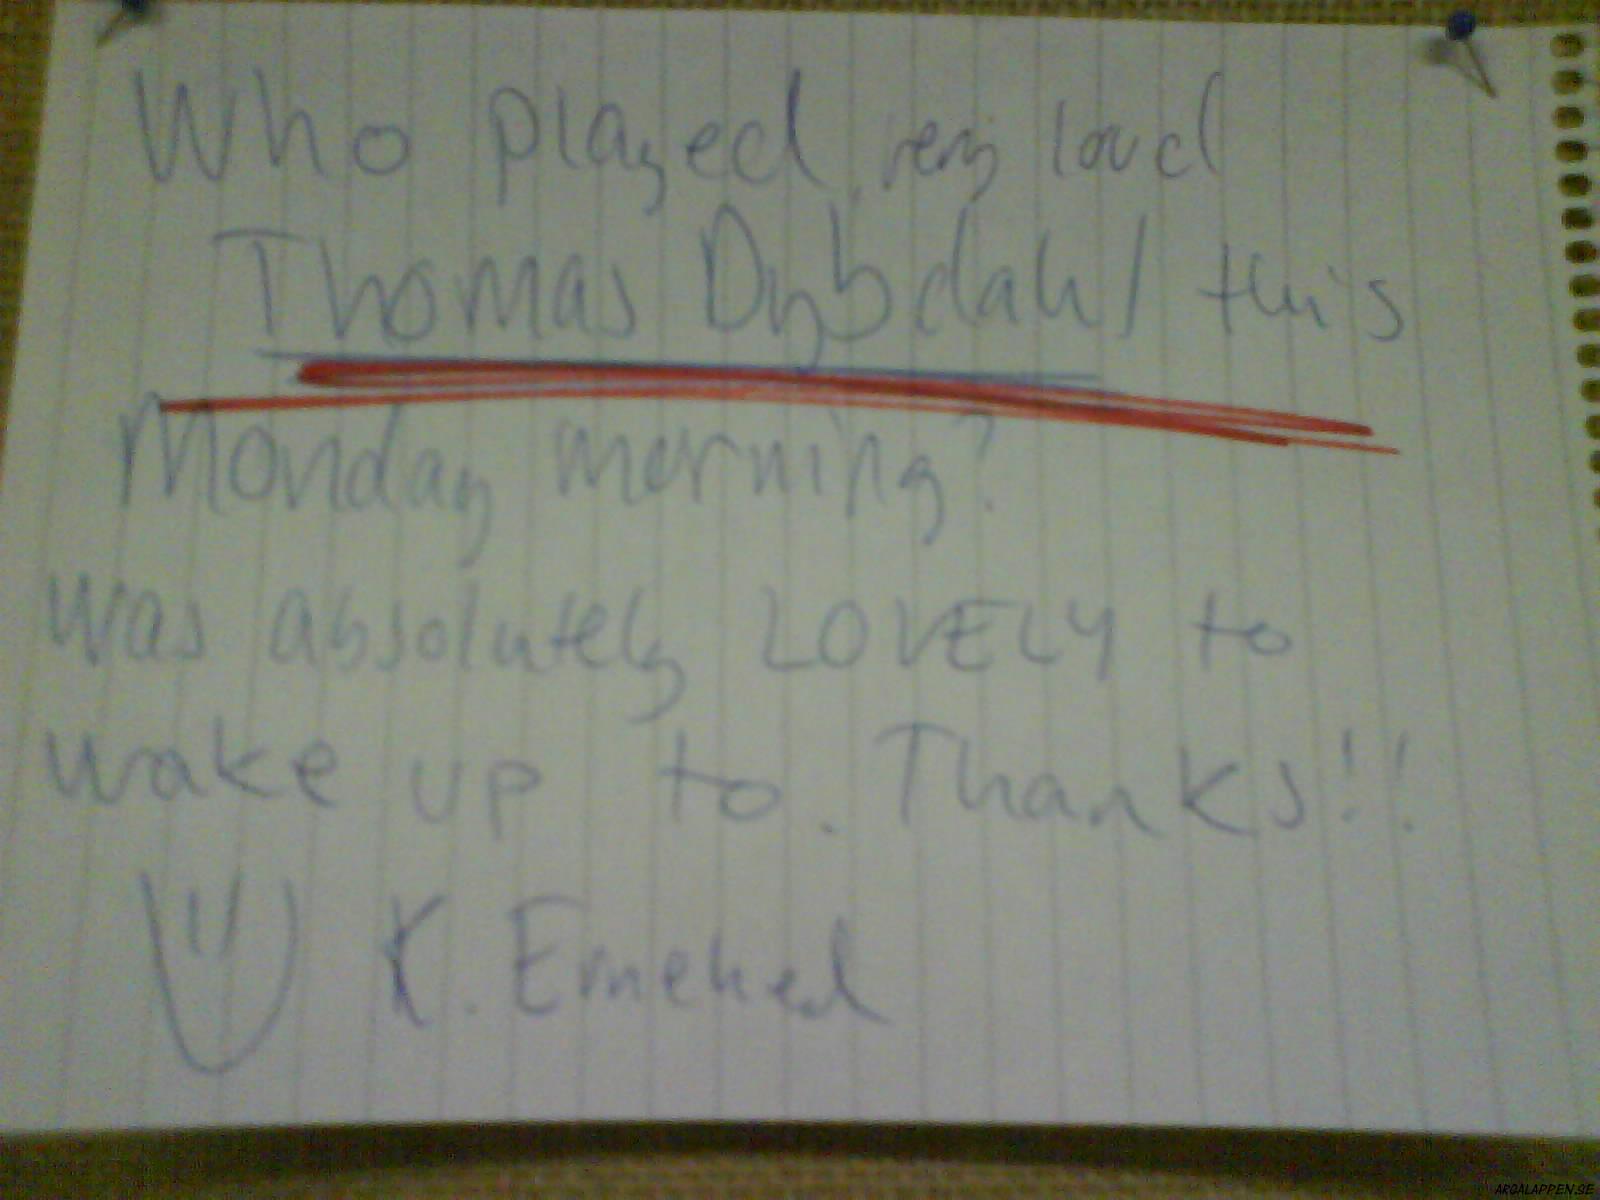 Who played very loud
Thomas Dybdahl this
Monday morning?
Was absolutely LOVELY to
wake up to. Thanks!!
K.
ARGALAPPEN.SE